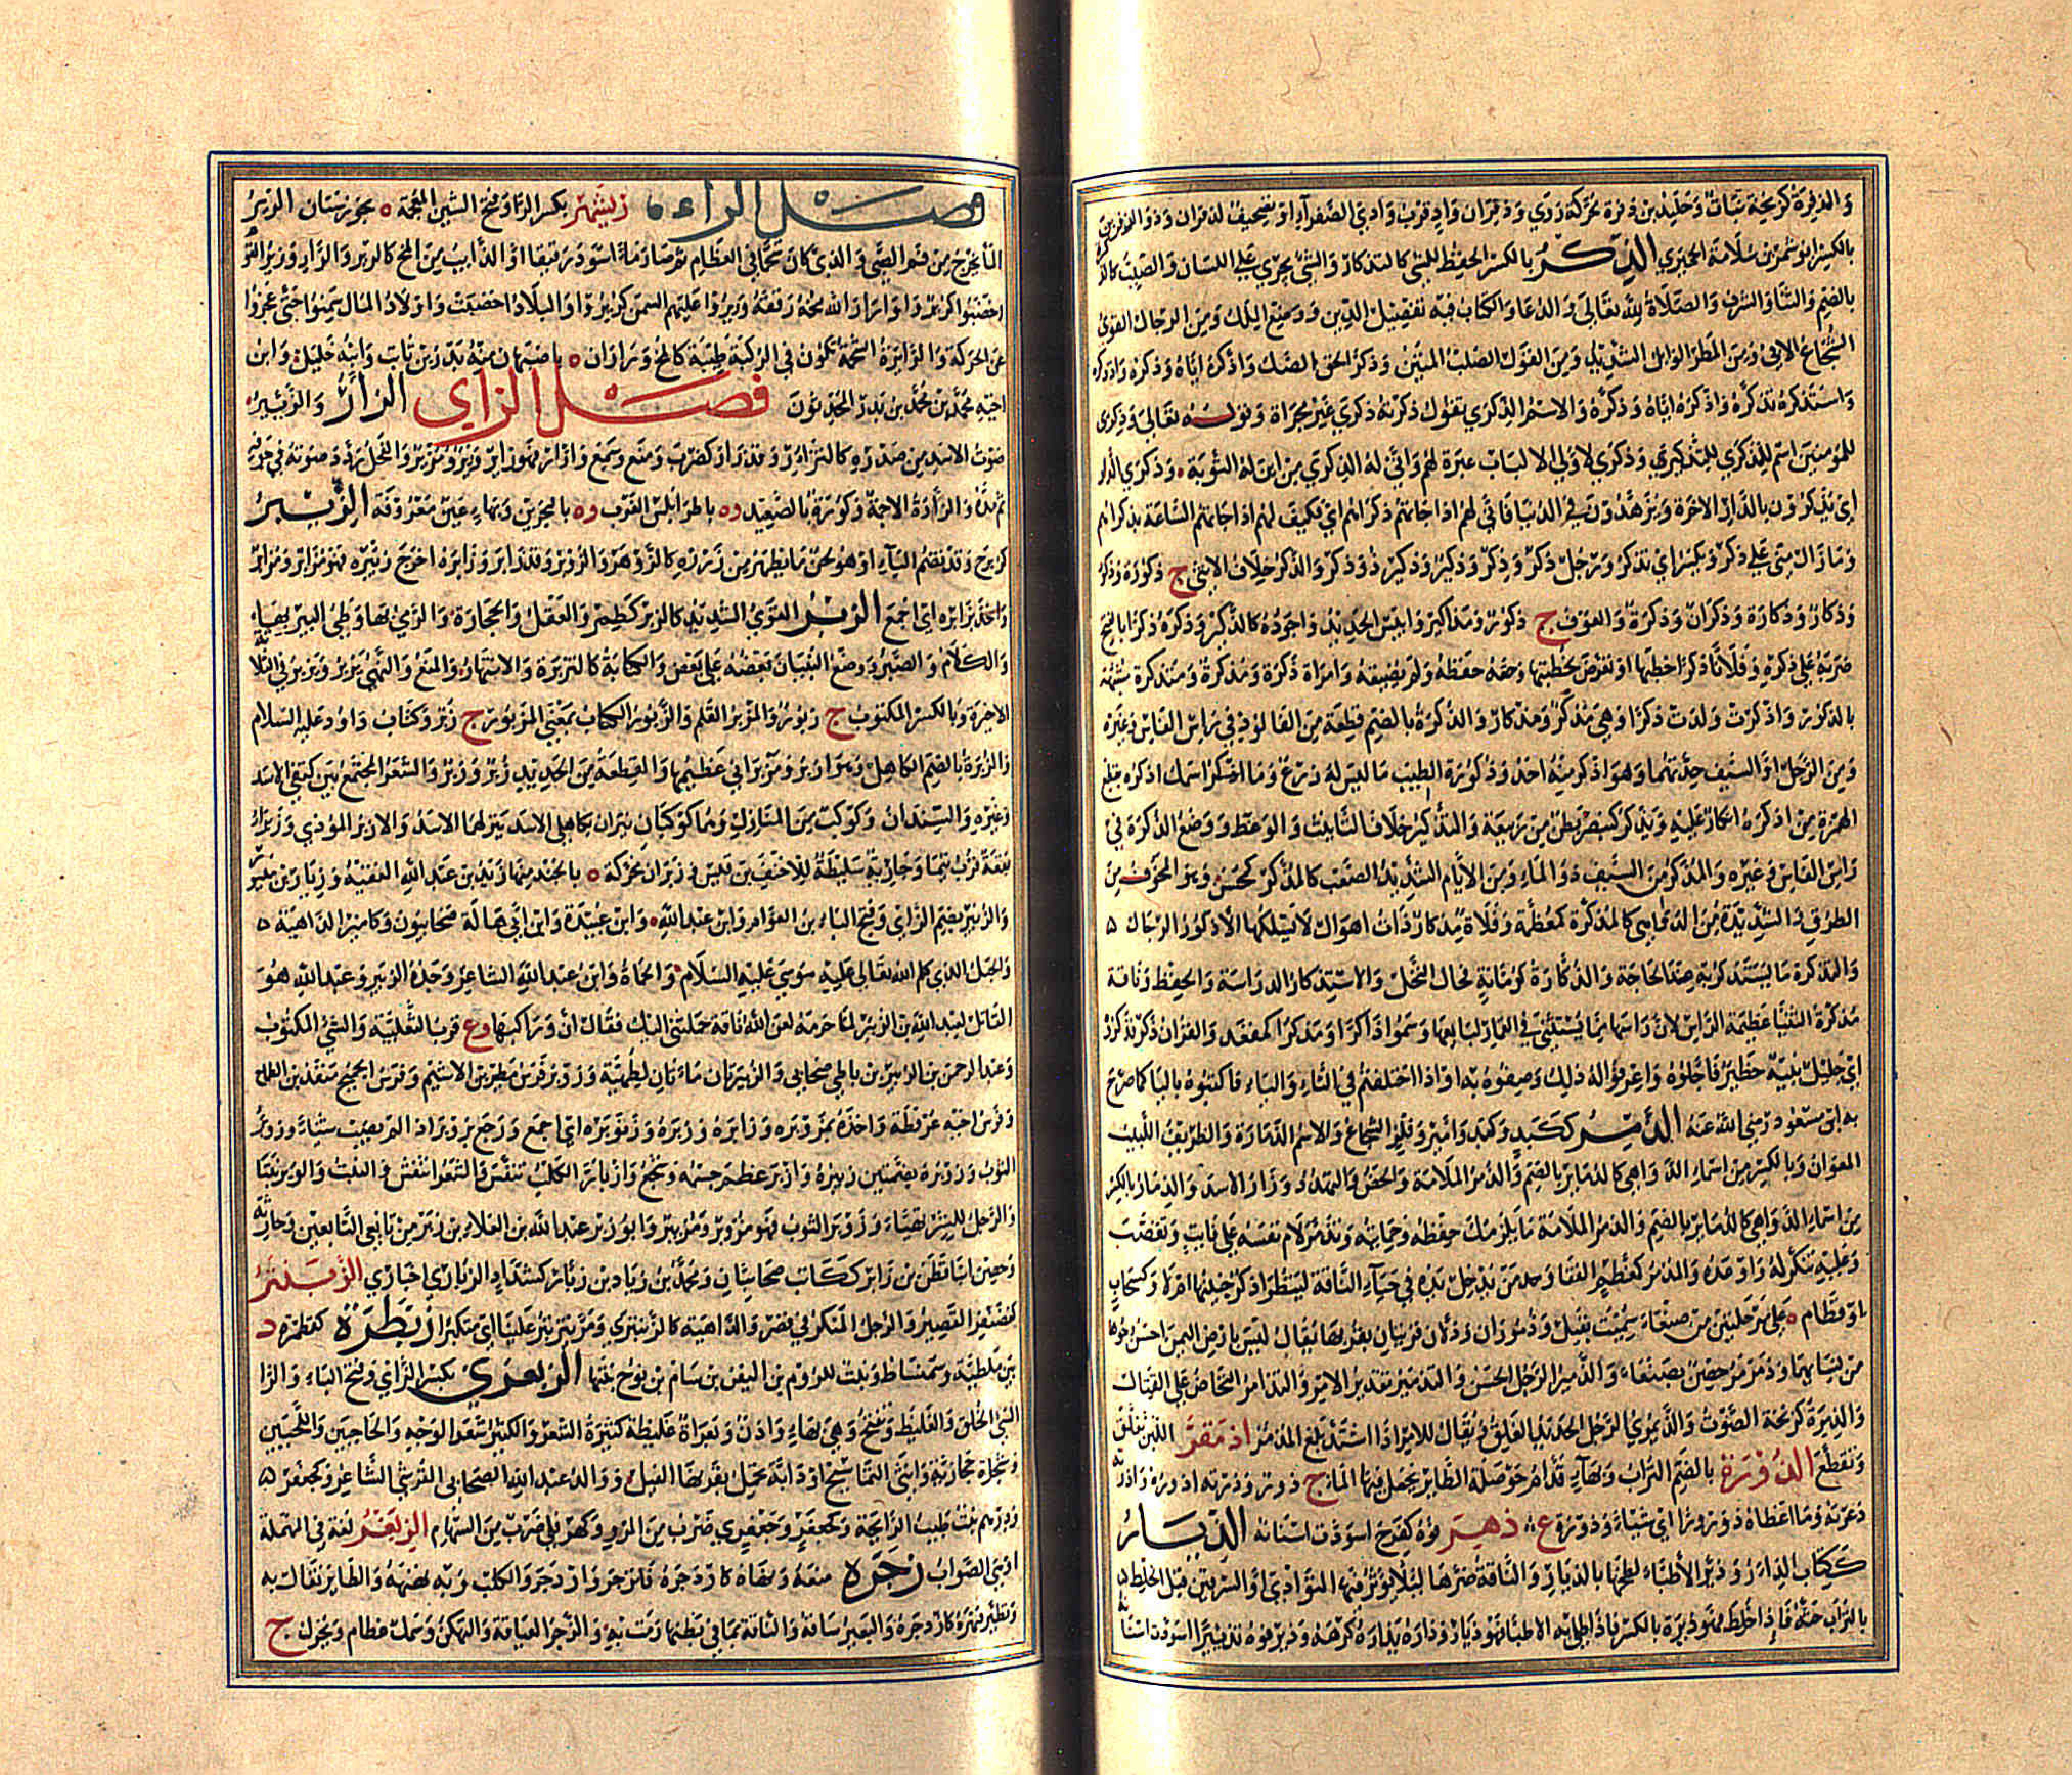 والذفرة كزنخة نبات وخليد بن ذفرة محركة روي وذفران واد قرب وادي الصفراء او تصحيف لدفران وذو الذفرين
بالكسر ابو شمر بن سلامة الحميري الذكر بالكسر الحفظ للشي كالتذكار والشي يجري على اللسان والصيت كالذكرة
بالضم والثنا والشرف والصلاة لله تعالى والدعا والكتاب فيه تفصيل الدين ووضع الملل ومن الرجال القوي
الشجاع الابي ومن المطر الوابل الشديد ومن القول الصلب المتين وذكر الحق الصك واذكره اياه وذكره واذدكره
واستذكره تذكره واذكره اياه وذكره والاسم الذكرى تقول ذكرته ذكرى غير مجراة وقوله تعالى وذكرى
للمومنين اسم للتذكير وذكرى لاولي الالباب عبرة لهم وانى له الذكرى من اين له التوبة وذكرى الدار
اي يذكرون بالدار الاخرة ويزهدون في الدنيا فانى لهم اذا جاتهم ذكراهم اي فكيف لهم اذا جاتهم الساعة بذكراهم
وما زال مني على ذكر ويكسر اي تذكر ورجل ذكر وذكر وذكير وذكير ذو ذكر والذكر خلاف الانثى ج ذكور وذكورة
وذكار وذكارة وذكران وذكرة والعوف ج ذكور ومذاكير وايبس الحديد واجوده كالذكير وذكره ذكرا بالفتح
ضربه على ذكره وفلانة ذكرا خطبها او تعرض لخطبتها وحقه حفظه ولم يضيعه وامراة ذكرة ومذكرة ومتذكرة متشبهة
بالذكور واذكرت ولدت ذكرا وهي مذكر ومذكار والذكرة بالضم قطعة من الفولاذ في راس الفاس وغيره
ومن الرجل والسيف حدتهما وهو اذكر منه احد وذكورة الطيب ما ليس له ردع وما اذكر اسمك اذكره بقطع
الهمزة من اذكر انكار عليه ويذكر كينصر بطن من ربيعة والتذكير خلاف التانيث والوعظ ووضع الذكرة في
راس الفاس وغيره والمذكر من السيف ذو الماء ومن الايام الشديد الصعب كالمذكر كمحسن وهو المخوف من
الطرق والشديدة من الدواهي كالمذكرة كمعظمة وفلاة مذكار ذات اهوال لا يسلكها الا ذكور الرجال
والتذكرة ما يستذكر به الحاجة والذكارة كرمانة فحال النخل والاستذكار الدراسة والحفظ وناقة
مذكرة الثنيا عظيمة الراس لان راسها مما يستثنى في القمار لبايعها وسموا ذاكرا ومذكرا كمقعد والقران ذكر فذكروه
اي جليل نبيه خطير فاجلوه واعرفوا له ذلك وصفوه به او اذا اختلفتم في التاء والياء فاكتبوه باليا كما صرح
به ابن مسعود رضي الله عنه الذمر ككبد وكبد وامير وفلز الشجاع والاسم الذمارة والظريف اللبيب
المعوان وبالكسر من اسماء الدواهي كالذمابر بالضم والذمر الملامة والحض والتهدد وزار الاسد والذمار بالكسر
من اسماء الدواهي كالذمابر بالضم والذمر الملامة ما يلزمك حفظه وحمايته وتذمر لام نفسه على فايت وتغضب
وعليه تنكر له واوعده والمذمر كمعظم القفا وكمحدث من يدخل يده في حياء الناقة لينظر اذكر جنينها ام لا وكسحاب
او قطام ه على مرحلتين من صنعاء سميت بقيل وذموران وذلان قريتان بقربها يقال ليس بارض اليمن احسن وجوها
من نسايهما وذمرمر حصن بصنعاء والذمير الرجل الحسن والتذمير تقدير الامر والتذامر التحاض على القتال
والذمرة كزنخة الصوت والذيمري الرجل الحديد العلق ويقال للامر اذا اشتد بلغ المذمر اذمقر اللبن تفلق
وتقطع الذورة بالضم التراب وبهاء قدام حوصلة الطاير يحمل فيها الماء ج ذور وذرته اذوره واذرته
ذعرته وما اعطاه ذورورا اي شيئا وذورة ع ذهر فوه كفرح اسودت اسنانه الذيار
ككتاب الدار وذير الاطباء لطخها بالذيار والناقة صرها ليلا يوثر فيها التوادي او السرقين قبل الخلط
بالتراب خثة فاذا خلط فهو ذيرة بالكسر فاذا طلي به الاطبا فهو ذيار وذاره يذاره كرهه وذير فوه تذييرا اسودت اسنانه
فصل الراء ريشهر بكسر الراء وفتح الشين المعجمة ه بخوزستان الرير
الماء يخرج من فم الصبي والذي كان شحما في العظام ثم صار ماء اسود رقيقا او الذايب من المخ كالرير والرار ورير القوم
اخصبوا كريروا وارار الله مخه رققه وريروا عليهم السمن كريروا والبلاد اخصبت واولاد المال سمنوا حتى عجزوا
عن الحركة والراىرة الشحمة تكون في الركبة طيبة كالمخ وراران ه باصبهان منه بدر بن ثابت وابنه خليل وابن
اخيه محمد بن محمد بن بدر المحدثون فصل الزاي الزار والزئير
صوت الاسد من صدره كالتزاؤر وقد زار كضرب ومنع وسمع وازار فهو زاير وزئر ومزئر والفحل ردد صوته في جوفه
ثم مده والزارة الاجمة وكورة بالصعيد وه باطرابلس الغرب وه بالبحرين وبها عين معروفة الزئبر
كزبرج وقد تضم الباء او هو لحن ما يظهر من درز كالزوهر والزوبر وقد زابر وزابره اخرج زئبره فهو مزابر ومزابر
واخذ بزابره اي اجمع الزبر القوي الشديد كالزبر كطمر والعقل والحجارة والرمي بها وطي البير بها
والكلام والصبر ووضع البنيان بعضه على بعض والكتابة كالتزبرة والانتهار والمنع والنهي يزبر ويزبر في الثلاثة
الاخيرة وبالكسر المكتوب ج زبور والمزبر القلم والزبور الكتاب بمعنى المزبور ج زبر وكتاب داود عليه السلام
والزبرة بالضم الكاهل وهو ازبر ومزبراني عظيمها والقطعة من الحديد ج زبر وزبر والشعر المجتمع بين كتفي الاسد
وغيره والسندان وكوكب من المنازل وهما كوكبان نيران بكاهلي الاسد ينزلهما الاسد والازبر الموذي وزبراء
بقعة قرب تيما وجارية سليطة للاحنف بن قيس وزبران محركة ه بالجند منها زيد بن عبد الله الفقيه وزبار بن مقبر
والزبير بضم الزاي وفتح الباء بن العوام وابن عبد الله وابن عبيدة وابن ابي هالة صحابيون وكامير الداهية
والجبل الذي كلم الله تعالى عليه موسى عليه السلام والحماة وابن عبد الله الشاعر وجده الزبير وعبد الله هو
القايل لعبد الله بن الزبير لما حرمه لعن الله ناقة حملتني اليك فقال ان وراكبها وع قرب الثعلبية والشي المكتوب
وعبد الرحمن بن الزبير بن باطى صحابي والزبيرتان ماءتان لطهية وزوبر فرس مطير بن الاشيم وفرس الجميح منقذ بن الطماح
وفرس اخيه عرفطة واخذه بزوبره وزابره وزبره وزنوبره اي اجمع ورجع بزوبر اذا لم يصب شيئا وزوبر
الثوب وزوبره بضمتين زئبره وازبر عظم جسمه وشجع وازبار الكلب تنفش والشعر انتفش والنبت والوبر نبتا
والرجل للشر تهيا وزوبر الثوب فهو مزوبر ومزيبر وابو زبر عبد الله بن العلاء بن زبر من تابعي التابعين وحارثة
وحصن ابنا قطن بن زابر ككاتب صحابيان ومحمد بن زياد بن زبار كشداد الزباري اخباري الزبنتر
كغضنفر القصير والرجل المنكر في قصر والداهية كالزبنتري ومر يتزبتر علينا اي متكبرا زبطرة كقمطرة د
بين ملطية وسميساط وبنت للروم بن اليفن بن سام بن نوح بنتها الزبعرى بكسر الزاي وفتح الباء والراء
السي الخلق والغليظ ويفتح وهي بهاء واذن زبعراة غليظة كثيرة الشعر والكثير شعر الوجه والحاجبين واللحيين
وشجرة حجازية وانثى التماسيح او دابة تحمل بقرنها الفيل ووالد عبد الله الصحابي القرشي الشاعر وكجعفر
ودرهم نبت طيب الرايحة وكجعفر وجعفري ضرب من المرو وكهرقلي ضرب من السهام الزبغر لغة في المهملة
او هي الصواب زجره منعه ونهاه كازدجره فانزجر وازدجر والكلب وبه نهنهه والطاير تفال به
وتطير فنهره كازدجره والبعير ساقه والناقة بما في بطنها رمت به والزجر العيافة والتكهن وسمك عظام ويحرك ج